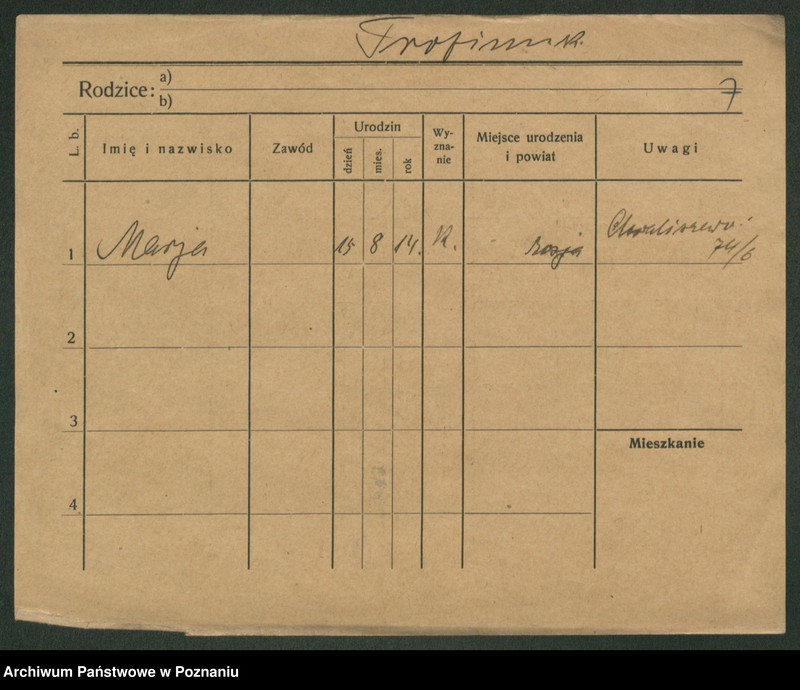 Trofimuk.
Rodzice: a)
b)
7
L. b.
Imię i nazwisko
Zawód
Urodzin
dzień
mies.
rok
Wy-
zna-
nie
Miejsce urodzenia
i powiat
Uwagi
1
Marja
15
8
14.
K.
Rosja
Chwaliszewo
74/6
2
3
4
Mieszkanie
Archiwum Państwowe w Poznaniu